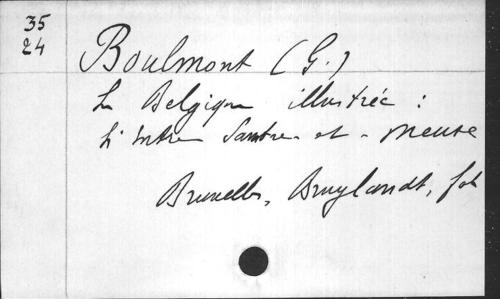 35
24
Boulmont (G.)
La Belgique illustrée :
L'Entre Sambre-et-Meuse
Bruxelles, Bruylandt, fol